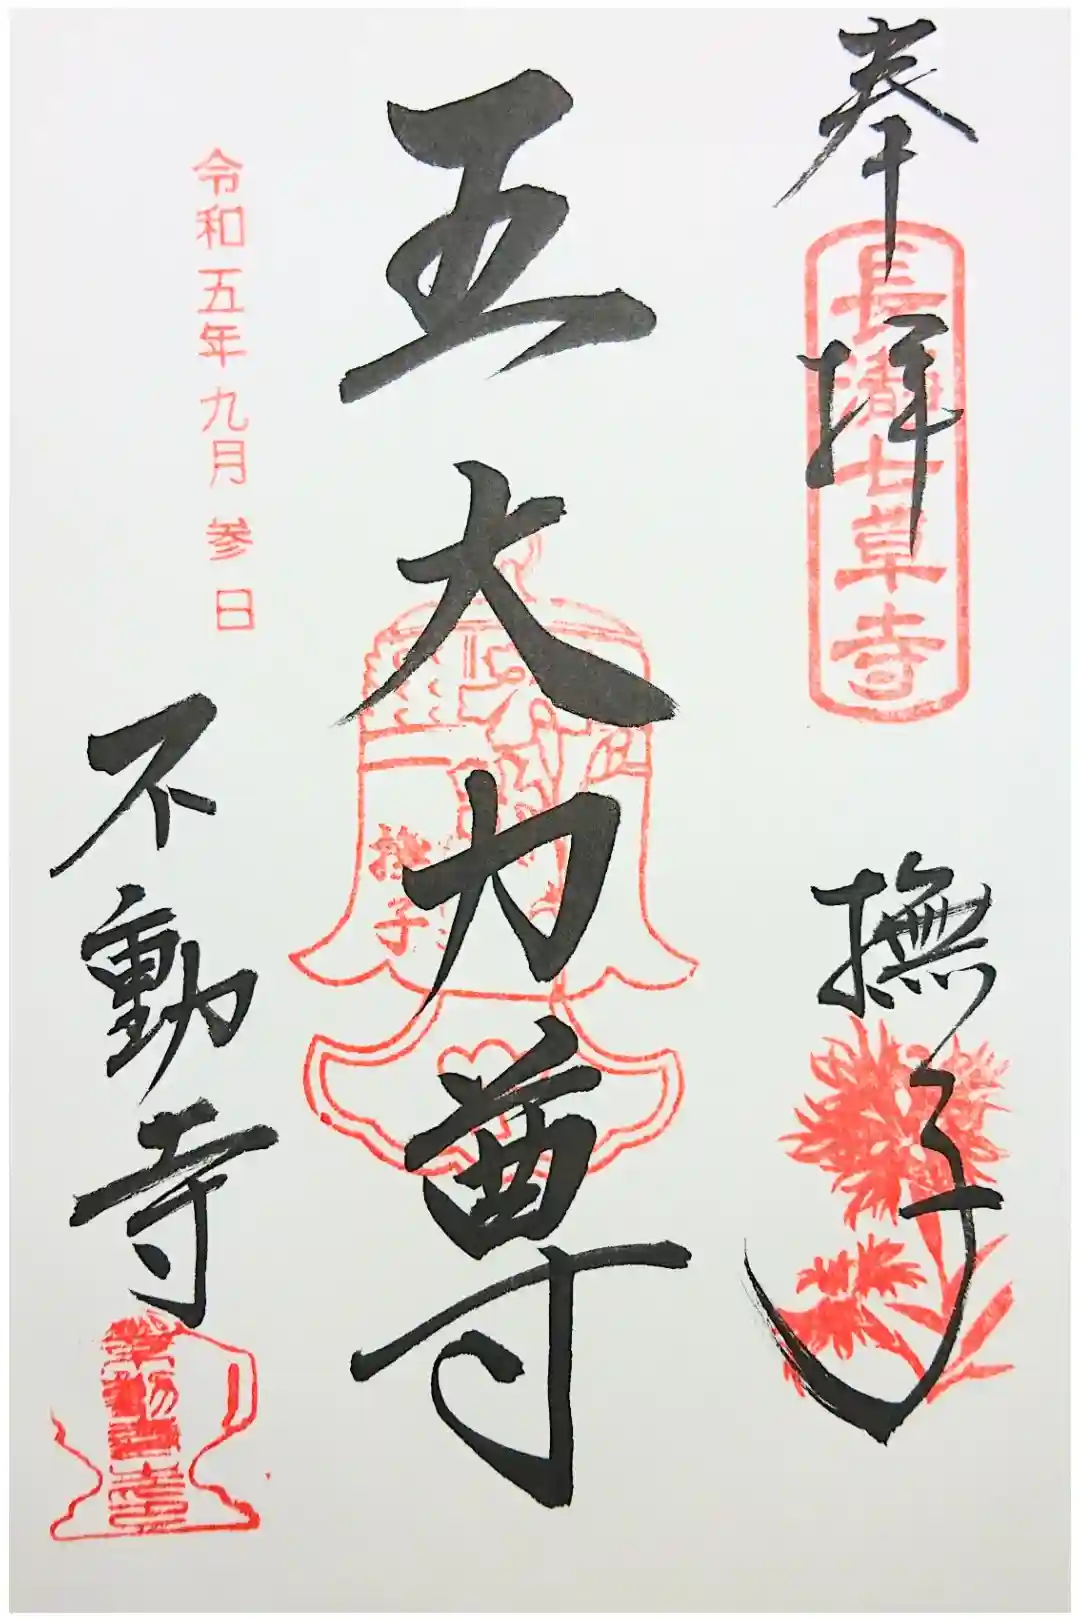 奉拝
長瀞七草寺
撫子
五大力尊
撫子
令和五年九月参日
不動寺